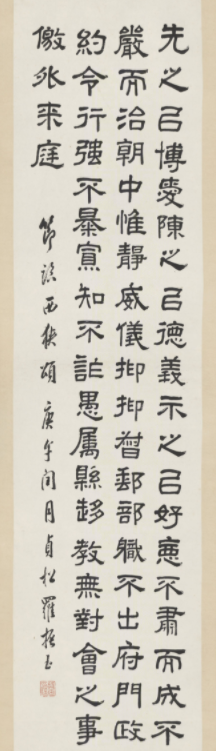 先之㠯博愛陳之㠯德義示之㠯好惡不肅而成不
嚴而治朝中惟靜威儀抑抑督郵部職不出府門政
約令行強不暴寡知不詐愚属縣趍教無對會之事
徼外来庭
節臨西狹頌 庚午閏月貞松羅振玉